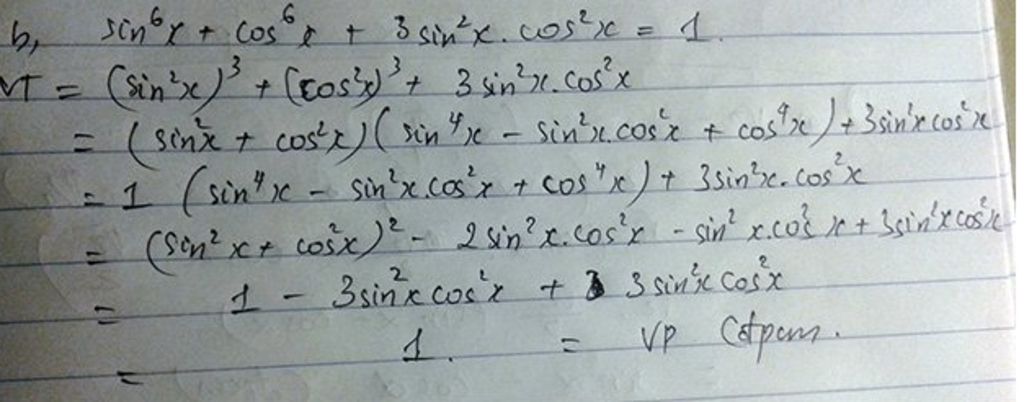 b, sin⁶x + cos⁶x + 3 sin²x. cos²x = 1.
VT = (sin²x)³ + (cos²x)³ + 3 sin²x. cos²x
= (sin²x + cos²x)(sin⁴x - sin²x.cos²x + cos⁴x) + 3sin²x cos²x
= 1 (sin⁴x - sin²x.cos²x + cos⁴x) + 3sin²x. cos²x
= (sin²x + cos²x)² - 2sin²x.cos²x - sin²x.cos²x + 3sin²x cos²x
= 1 - 3sin²x cos²x + 3 sin²x cos²x
= 1. = VP